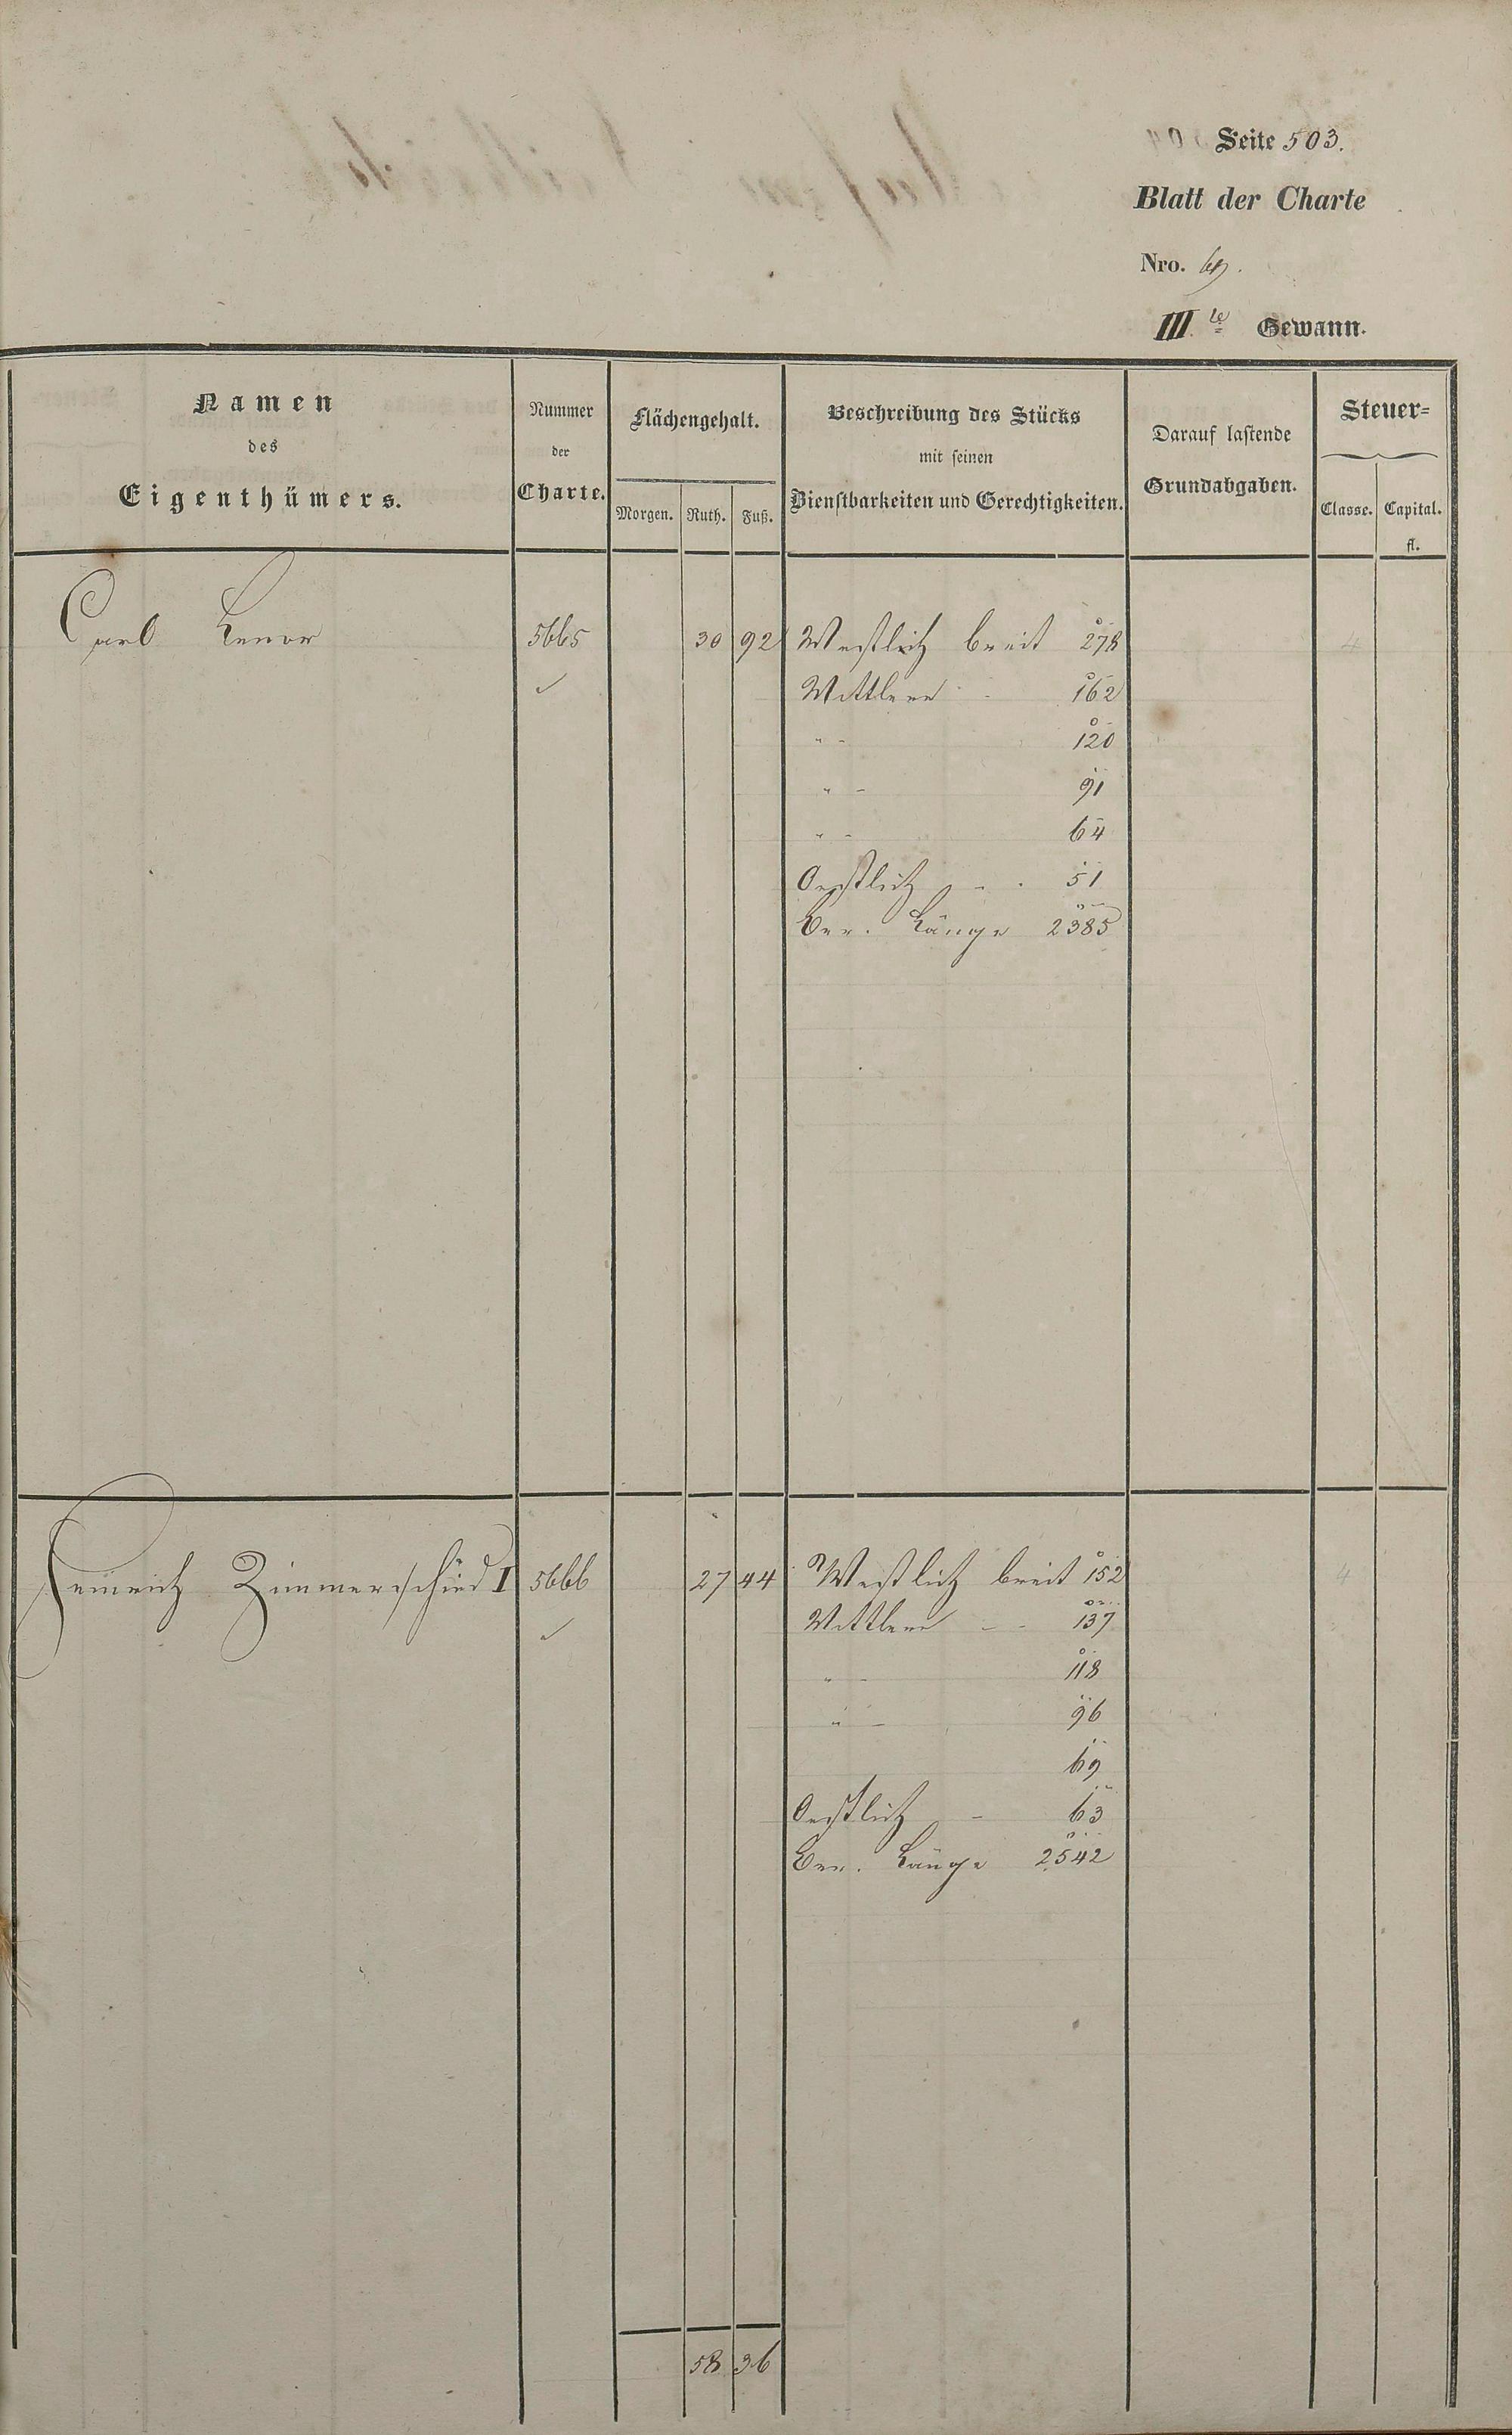 Seite 503.
Blatt der Charte
Nro. 69.
III.te Gewann.
Namen
des
Eigenthümers.
Nummer
der
Charte.
Flächengehalt.
Morgen. Ruth. Fuß.
Beschreibung des Stücks
mit seinen
Dienstbarkeiten und Gerechtigkeiten.
Darauf lastende
Grundabgaben.
Steuer=
Classe. Capital.
fl.
Carl 5665 30 92 Westlich breit 278 4
✓ Mittlere - 162
" - 120
" - 91
" - 64
Oestlich - - 51
Ber. Länge 2385
Heinrich Zimmerschied I 5666 27 44 Westlich breit 152 4
✓ Mittlere - - 137
" - 118
" - 96
69
Oestlich - 63
Ber. Länge 2542
58 36